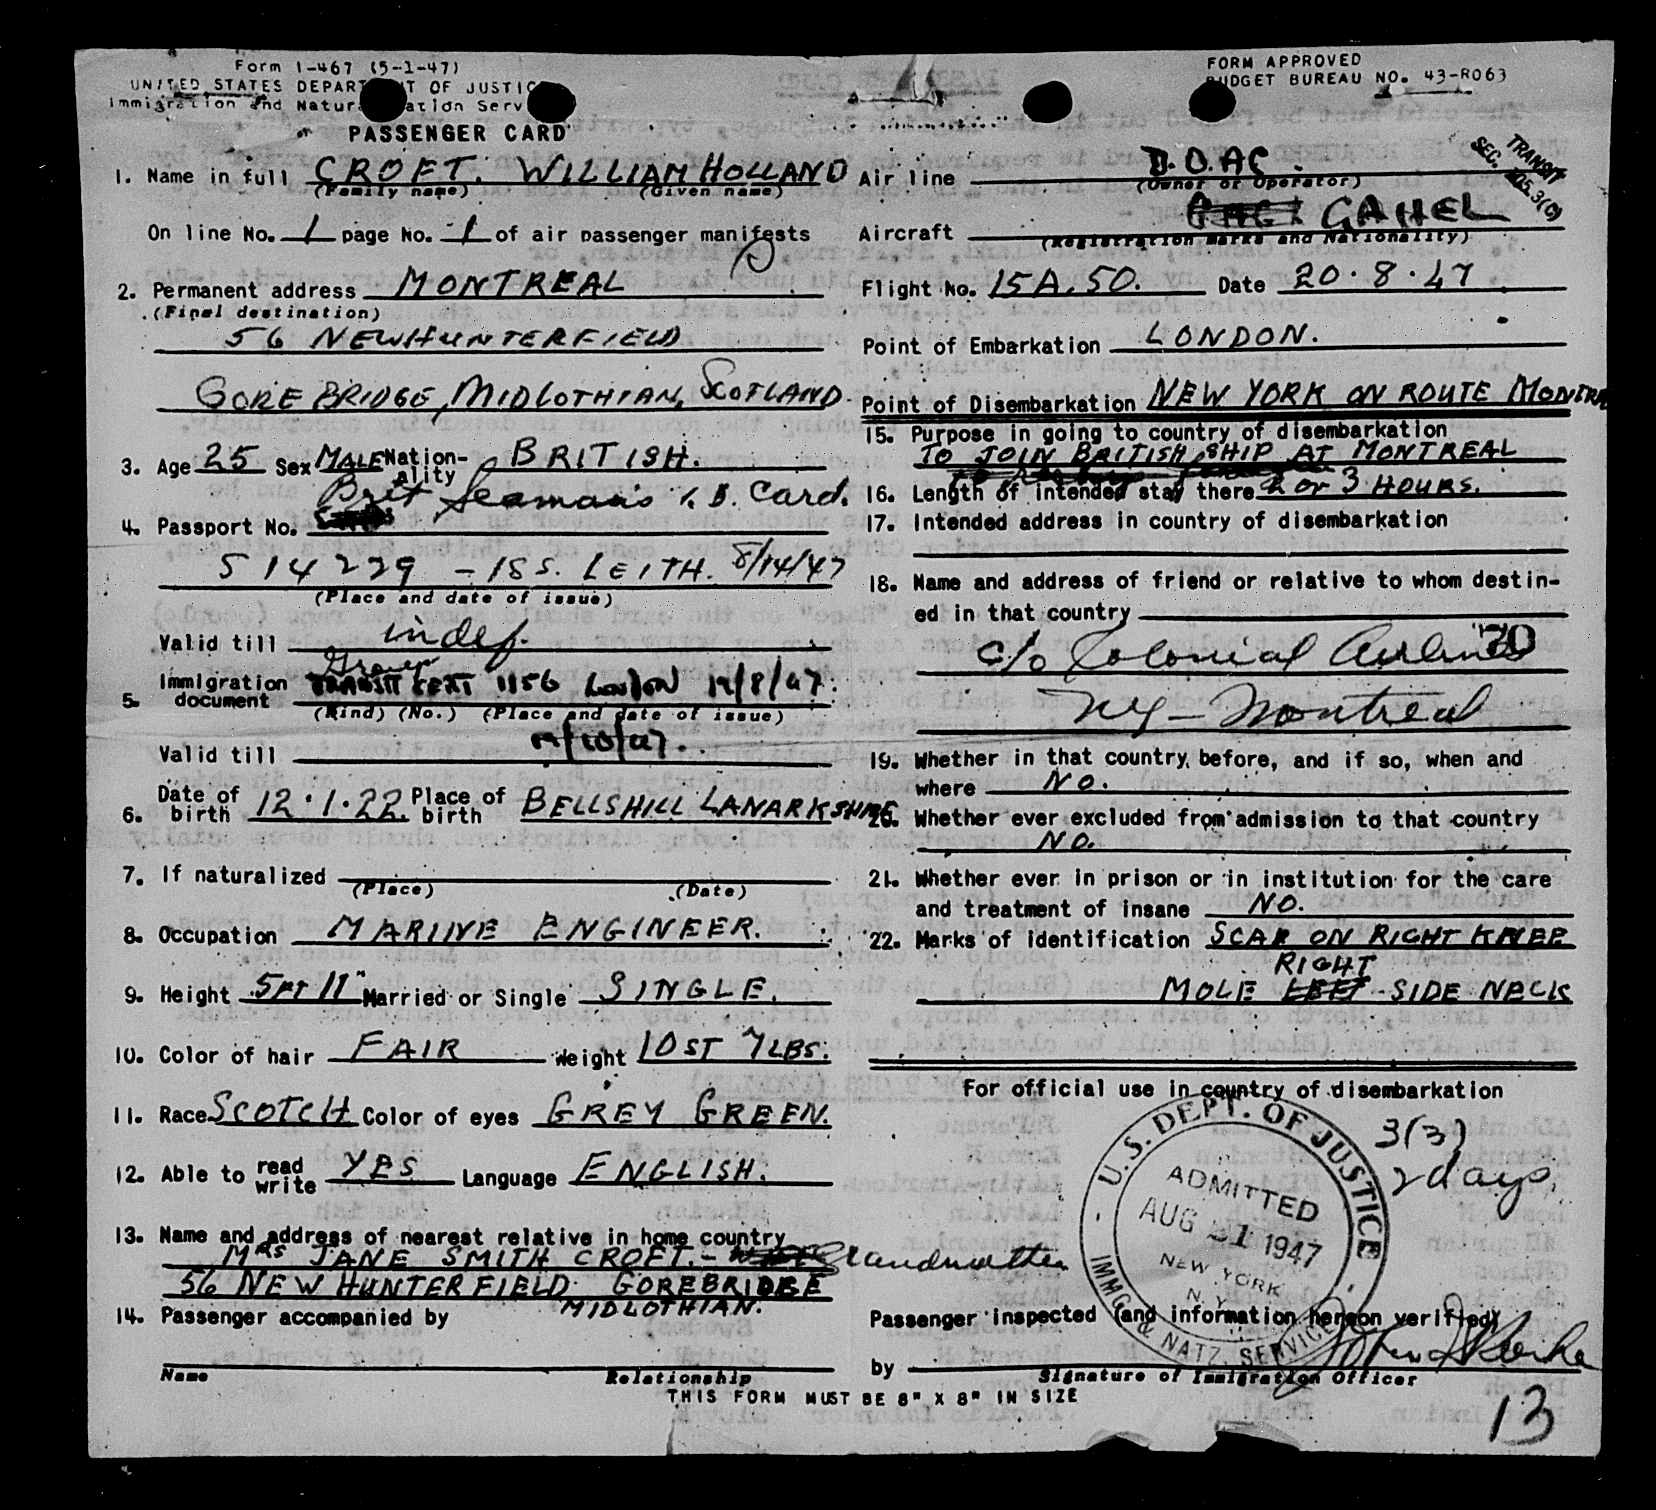 Form I-467 (5-1-47)
UNITED STATES DEPARTMENT OF JUSTICE
Immigration and Naturalization Service
PASSENGER CARD
FORM APPROVED
BUDGET BUREAU NO. 43-R063
TRANSIT
SEC. 3(3)
1. Name in full CROFT. WILLIAM HOLLAND
(Family name) (Given name)
On line No. 1 page No. 1 of air passenger manifests
2. Permanent address MONTREAL
(Final destination)
56 NEWHUNTERFIELD
GOREBRIDGE, MIDLOTHIAN, SCOTLAND.
3. Age 25 Sex MALE Nationality BRITISH.
Brit Seaman's I.D. Card.
4. Passport No.
514229 - ISS. LEITH. 8/14/47
(Place and date of issue)
Valid till indef.
Group
5. Immigration document TRANSIT CERT 1156 LONDON 19/8/47.
(Kind) (No.) (Place and date of issue)
Valid till 19/10/47.
6. Date of birth 12.1.22. Place of birth BELLSHILL LANARKSHIRE
7. If naturalized
(Place) (Date)
8. Occupation MARINE ENGINEER.
9. Height 5FT 11" Married or Single SINGLE.
10. Color of hair FAIR Weight 10 ST 7 LBS.
11. Race SCOTCH Color of eyes GREY GREEN.
12. Able to read write YES Language ENGLISH.
13. Name and address of nearest relative in home country
MRS JANE SMITH CROFT. - Grandmother
56 NEW HUNTERFIELD. GOREBRIDGE
MIDLOTHIAN.
14. Passenger accompanied by
Name Relationship
Air line B.O.AC.
(Owner or Operator)
Aircraft GAHEL
(Registration marks and Nationality)
Flight No. 15A.50. Date 20.8.47
Point of Embarkation LONDON.
Point of Disembarkation NEW YORK ON ROUTE MONTRA
15. Purpose in going to country of disembarkation
TO JOIN BRITISH SHIP AT MONTREAL
16. Length of intended stay there 2 or 3 HOURS.
17. Intended address in country of disembarkation
18. Name and address of friend or relative to whom destin-
ed in that country
c/o Colonial Airlines
NY - Montreal
19. Whether in that country before, and if so, when and
where NO.
20. Whether ever excluded from admission to that country
NO.
21. Whether ever in prison or in institution for the care
and treatment of insane NO.
22. Marks of identification SCAR ON RIGHT KNEE
RIGHT
MOLE LEFT SIDE NECK
For official use in country of disembarkation
3(3)
2 days
U.S. DEPT. OF JUSTICE
ADMITTED
AUG 21 1947
NEW YORK
N.Y.
IMMG. & NATZ. SERVICE
Passenger inspected (and information hereon verified)
by
Signature of Immigration Officer
THIS FORM MUST BE 8" X 8" IN SIZE
13